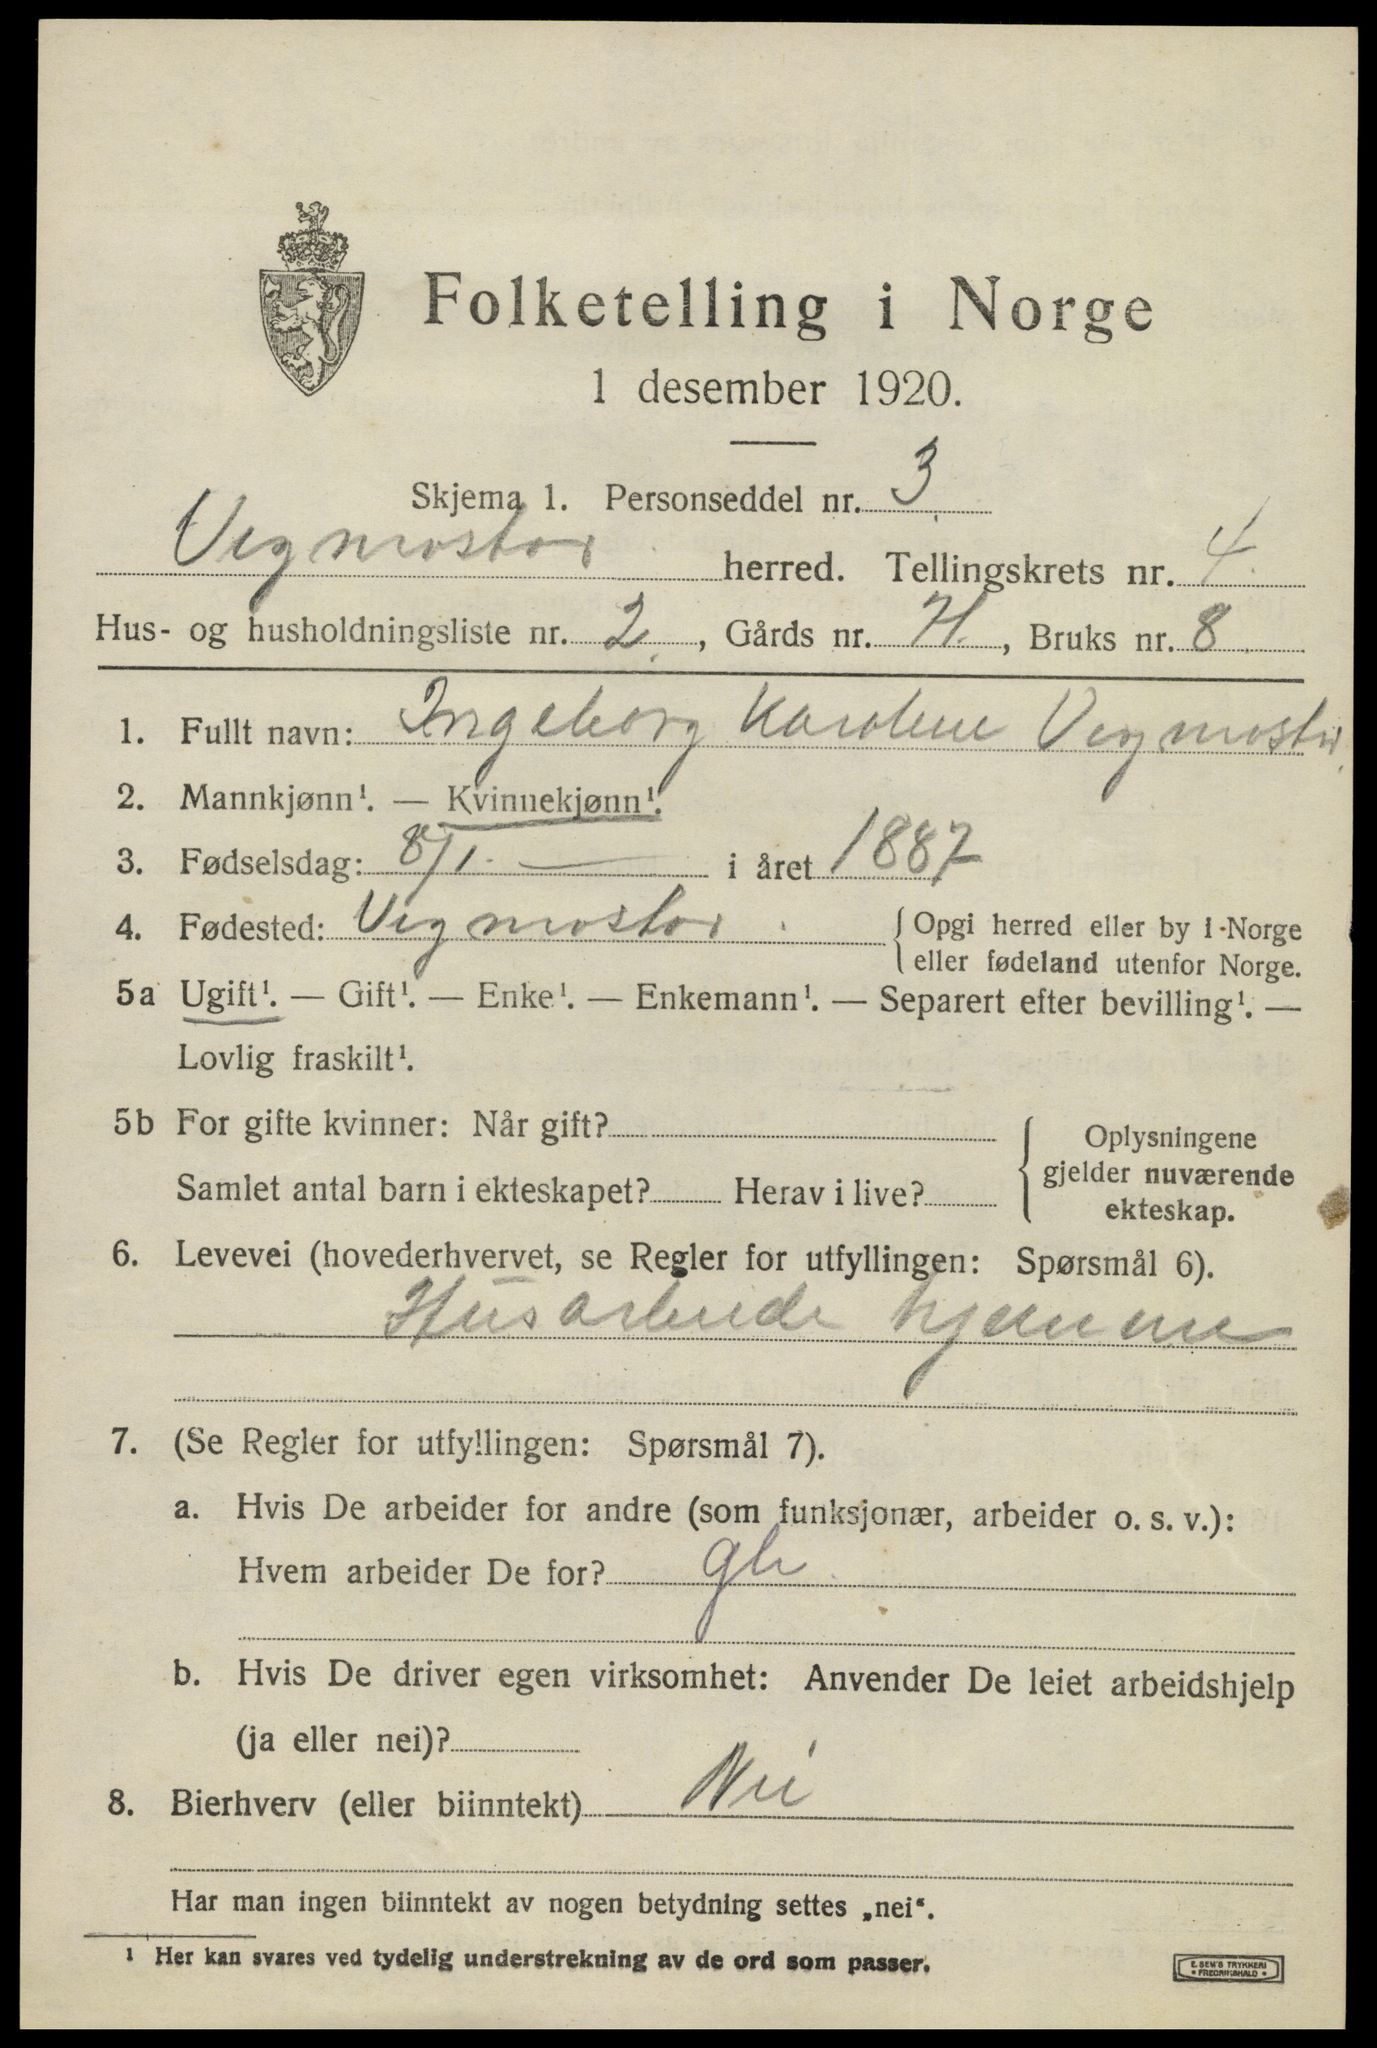 Folketelling i Norge
1 desember 1920.
Skjema 1. Personseddel nr. 3
Vegmostad herred. Tellingskrets nr. 4.
Hus- og husholdningsliste nr. 2., Gårds nr. H., Bruks nr. 8
1. Fullt navn: Ingeborg Karolene Vegmostad
2. Mannkjønn¹. — Kvinnekjønn¹.
3. Fødselsdag: 8/1. — i året 1887
4. Fødested: Vegmostad. { Opgi herred eller by i Norge
eller fødeland utenfor Norge.
5a Ugift¹. — Gift¹. — Enke¹. — Enkemann¹. — Separert efter bevilling¹. —
Lovlig fraskilt¹.
5b For gifte kvinner: Når gift? { Oplysningene
gjelder nuværende
Samlet antal barn i ekteskapet? Herav i live? ekteskap.
6. Levevei (hovederhvervet, se Regler for utfyllingen: Spørsmål 6).
Husarbeide hjemme
7. (Se Regler for utfyllingen: Spørsmål 7).
a. Hvis De arbeider for andre (som funksjonær, arbeider o. s. v.):
Hvem arbeider De for?
b. Hvis De driver egen virksomhet: Anvender De leiet arbeidshjelp
(ja eller nei)?
8. Bierhverv (eller biinntekt) Nei
Har man ingen biinntekt av nogen betydning settes „nei“.
¹ Her kan svares ved tydelig understrekning av de ord som passer.
E. SEM'S TRYKKERI
FREDRIKSHALD